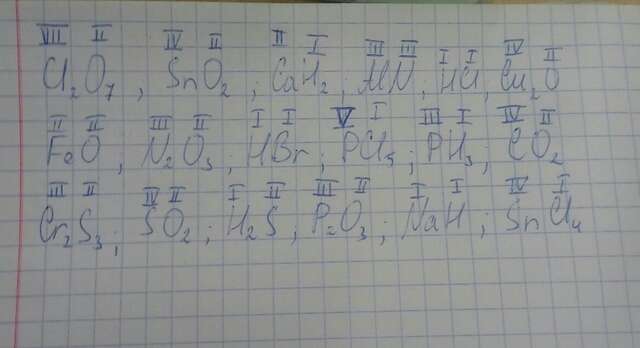 VII II IV II II I III III I I IV II
Cl₂O₇, SnO₂; CaH₂; AlN; HCl; Cu₂O
II II III II I I V I III I IV II
FeO, N₂O₃; HBr; PCl₅; PH₃; CO₂
III II IV II I II III II I I IV I
Cr₂S₃; SO₂; H₂S; P₂O₃; NaH; SnCl₄